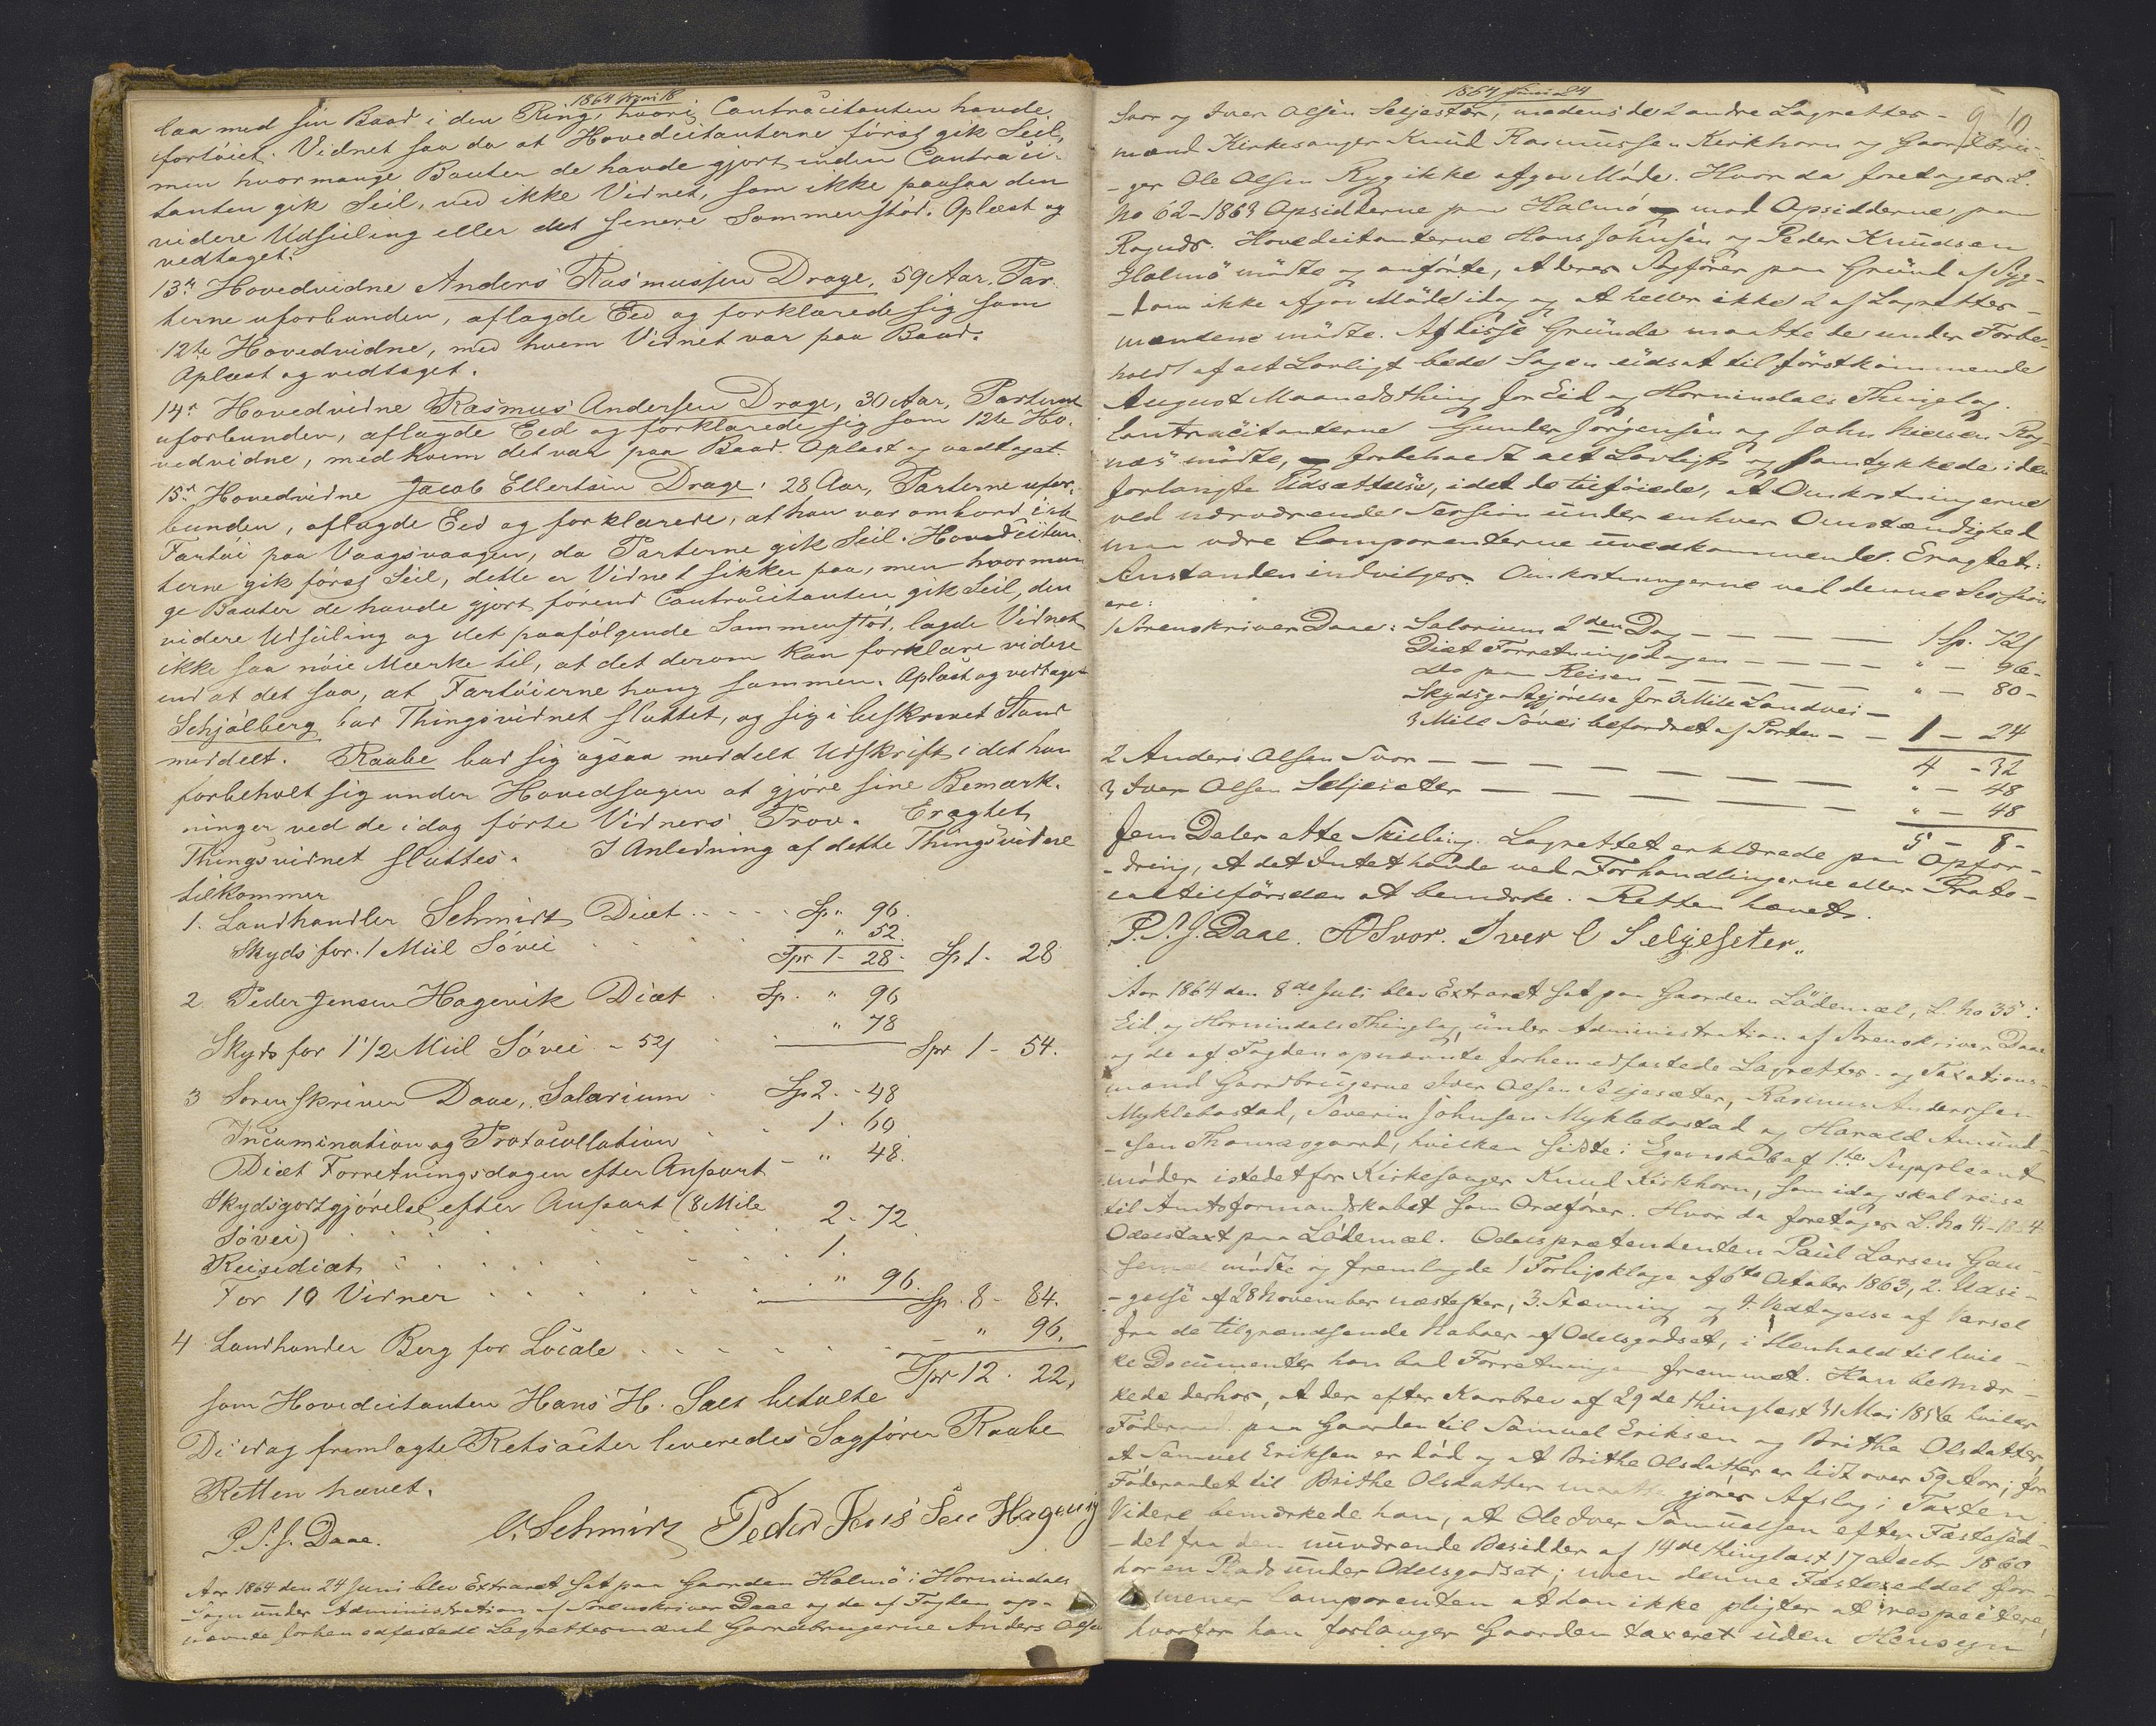 1864 Juni 18
laa med sin Baad i den Ring, hvori Contracitanten havde
fortøiet. Vidnet saa da at Hovedcitanterne først gik Seil,
men hvormange Bauter de havde gjort inden Contraci-
tanten gik Seil, ved ikke Vidnet, som ikke paasaa den
videre Udseiling eller det senere Sammenstød. Oplæst og
vedtaget.
13de Hovedvidne Anders Rasmussen Drage, 59 Aar, Par-
terne uforbunden, aflagde Eed og forklarede sig som
12te Hovedvidne, med hvem Vidnet var paa Baad.
Oplæst og vedtaget.
14de Hovedvidne Rasmus Andersen Drage, 30 Aar, Parterne
uforbunden, aflagde Eed og forklarede sig som 12te Ho-
vedvidne, med hvem det var paa Baad. Oplæst og vedtaget.
15de Hovedvidne Jacob Ellertsen Drage, 28 Aar, Parterne ufor-
bunden, aflagde Eed og forklarede, at han var ombord i et
Fartøi paa Vaagsvaagen, da Parterne gik Seil. Hovedcitan-
terne gik først Seil, dette er Vidnet sikker paa, men hvorman-
ge Bauter de havde gjort, førend Contracitanten gik Seil, den
videre Udseiling og det paafølgende Sammenstød, lagde Vidnet
ikke saa nøie Mærke til, at det derom kan forklare videre
end at det saa, at Fartøierne hang sammen. Oplæst og vedtaget
Schjølberg bad Thingsvidnet sluttet, og sig i beskrevet Stand
meddelt. Raabe bad sig ogsaa meddelt Udskrift, idet han
forbeholt sig under Hovedsagen at gjøre sine Bemærk-
ninger ved de idag førte Vidners Prov. Eragtet
Thingsvidnet sluttes. I Anledning af dette Thingsvidne
tilkommer
1. Landhandler Schmidt Diæt . . . Sp " 96.
Skyds for 1 Miil Søvei . . . " 52.
Spr 1 - 28 - Sp 1 - 28
2. Peder Jensen Hagevik Diæt . Sp. " 96
Skyds for 1 1/2 Miil Søvei - 52 . " 78
Spr 1 - 54.
3 Sorenskriver Daae, Salarium . Sp 2. - 48
Incamination og Protocollation . . 1. 60
Diæt Forretningsdagen efter Anpart - " 48.
Skydsgodtgjørelse efter Anpart (8 Mile
Søvei) . . . 2 - 72
Reisediæt . . . 1.
For 10 Vidner . . . " 96.
Sp. 8 - 84.
4 Landhandler Berg for Locale . . . " 96.
Spr 12 . 22,
som Hovedcitanten Hans H. Sæs betalte
De idag fremlagte Retsacter leveredes Sagfører Raabe
Retten hævet.
P.S.J. Daae. C. Schmidt Peder Jens Sen Hagevig
Aar 1864 den 24 Juni blev Extraret sat paa Gaarden Holmø i Hornindals
Sogn under Administration af Sorenskriver Daae og de af Fogden op-
nævnte forhen edfæstede Lagrettesmænd Gaardbrugerne Anders Olsen
1864 Juni 24
9 10
Svor og Iver Olsen Seljesæter, medens de 2 andre Lagrettes-
mænd Kirkesanger Knud Rasmussen Kirkhorn og Gaardbru-
ger Ole Olsen Ryg ikke afgav Møde. Hvor da foretages L.
No 62-1863 Opsidderne paa Holmø mod Opsidderne paa
Hovedcitanterne Hans Johnsen og Peder Knudsen
Holmø mødte og anførte, at deres Sagfører paa Grund af Syg-
dom ikke afgav Møde idag og at heller ikke 2 af Lagrettes-
mændene mødte. Af disse Grunde maatte de under Forbe-
hold af alt Lovligt bede Sagen udsat til førstkommende
August Maanedsthing for Eid og Hornindals Thinglag.
Contracitanterne Gunder Jørgensen og John Nielsen
mødte, forbeholdt alt Lovligt og samtykkede i den
forlangte Udsættelse, idet de tilføiede, at Omkostningerne
ved nærværende Session under enhver Omstændighed
maa være Comparenterne uvedkommende. Eragtet:
Anstanden indvilges. Omkostningerne ved denne Session
ere:
1 Sorenskriver Daae: Salarium 2den Dag - - - 1 Sp. 72 s
Diæt Forretningsdagen - - - " - 96 -
do paa Reisen - - - " - 80 -
Skydsgodtgjørelse for 3 Mile Landvei -
3 Mile Søvei befordret af Parten - - 1 - 24
4 - 32
2 Anders Olsen Svor - - - " - 48
3 Iver Olsen Seljesæter - - - " - 48
5 - 8 -
Fem Daler otte Skilling. Lagrettet erklærede paa Opfor-
dring, at det Intet havde ved Forhandlingerne eller Proto-
coltilførslen at bemærke. Retten hævet.
P.S.J. Daae. A Svor. Iver O Seljeseter.
Aar 1864 den 8de Juli blev Extraret sat paa Gaarden Lødemæl, L. No 35 i
Eid og Hornindals Thinglag, under Administration af Sorenskriver Daae
og de af Fogden opnævnte forhen edfæstede Lagrettes- og Taxations-
mænd Gaardbrugerne Iver Olsen Seljesæter, Rasmus Anderssen
Myklebostad, Severin Johnsen Myklebostad og Harald Amund-
sen Thomasgaard, hvilken sidste i Egenskab af 1ste Suppleant
møder istedetfor Kirkesanger Knud Kirkhorn, som idag skal reise
til Amtsformandskabet som Ordfører. Hvor da foretages L. No 4-1864
Odelstaxt paa Lødemæl. Odelsprætendenten Paul Larsen
mødte og fremlagde 1 Forligsklage af 6te October 1863, 2. Udsi-
gelse af 28 November næstefter, 3. Stævning og 4. Vedtagelse af Varsel
fra de tilgrændsende Naboer af Odelsgodset, i Henhold til hvil-
ke Documenter han bad Forretningen fremmet. Han bemær-
kede derhos, at der efter Kaarbrev af 29de thinglæst 31 Mai 1856 hviler
Føderaad paa Gaarden til Samuel Eriksen og Brithe Olsdatter,
at Samuel Eriksen er død og at Brithe Olsdatter er lidt over 59 Aar; for
Føderaadet til Brithe Olsdatter maatte gjøres Afslag i Taxten.
Videre bemærkede han, at Ole Iver Samuelsen efter Fæstesed-
del fra den nuværende Besidder af 14de thinglæst 17 Decbr 1860
har en Plads under Odelsgodset; men denne Fæsteseddel for-
mener Comparenten at han ikke pligter at respectere,
hvorfor han forlanger Gaarden taxeret uden Hensyn